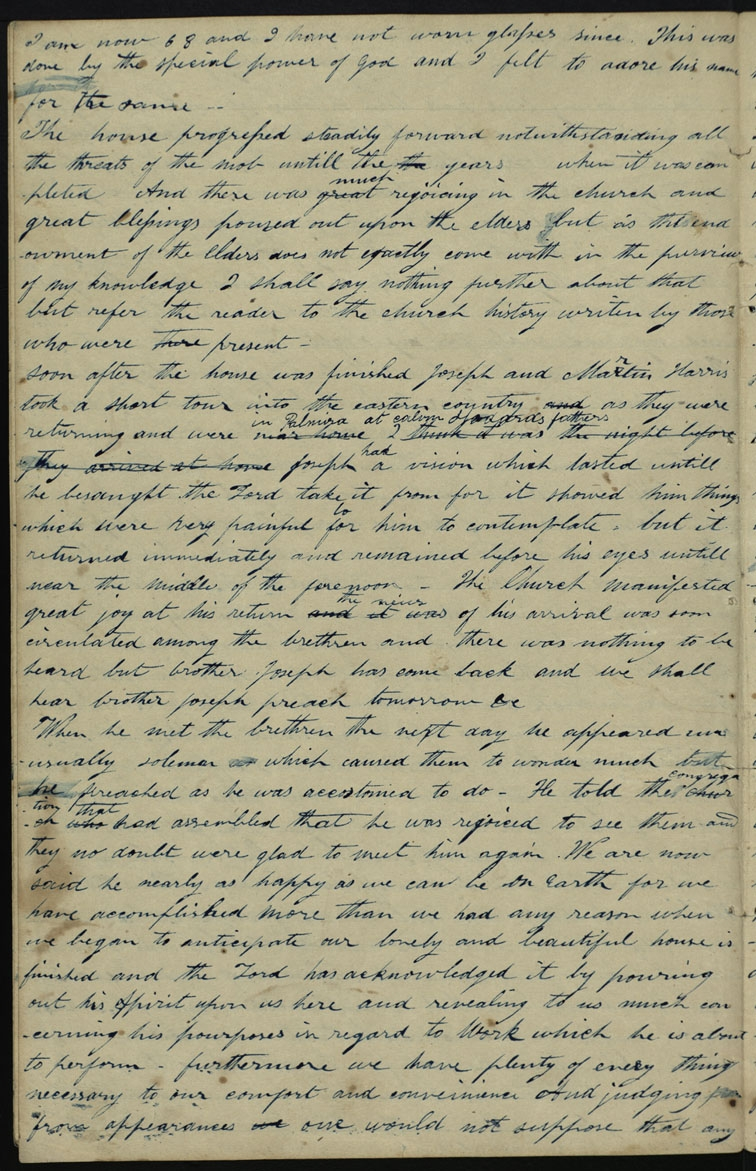 I am now 68 and I have not worn glasses since. This was
done by the special power of God and I felt to adore his name
for the same --
The house progressed steadily forward notwithstanding all
the threats of the mob untill the the years when it was com
-pleted And there was great much rejoicing in the church and
great blessings poured out upon the elders but as the end
-owment of the Elders does not exactly come with in the purview
of my knowledge I shall say nothing further about that
but refer the reader to the church history writen by those
who were there present -
soon after the house was finished Joseph and Martin Harris
took a short tour into the eastern country and as they were
in Palmira at calvin stodards fathers
returning and were near home I think it was the night before
they arrived at home Joseph had a vision which lasted untill
he besaught the Lord take it from for it showed him things
which were very painful to for him to contemplate. but it
returned immediately and remained before his eyes untill
near the middle of the forenoon - The Church manifested
great joy at his return and it was the news of his arrival was soon
circulated among the brethren and there was nothing to be
heard but brother Joseph has come back and we shall
hear brother joseph preach tomorrow &c
When he met the brethren the next day he appeared un
-usually soleman which caused them to wonder much but
he preached as he was accustomed to do - He told the congrega chur
-tion that
-ch who had assembled that he was rejoiced to see them and
they no doubt were glad to meet him again. We are now
said he nearly as happy as we can be on Earth for we
have accomplished more than we had any reason when
we began to anticipate our lovely and beautiful house is
finished and the Lord has acknowledged it by pouring
out his Spirit upon us here and revealing to us much con
-cerning his pourposes in regard to Work which he is about
to perform - furthermore we have plenty of every thing
necessary to our comfort and convenience and judging from
from appearances one would not suppose that any